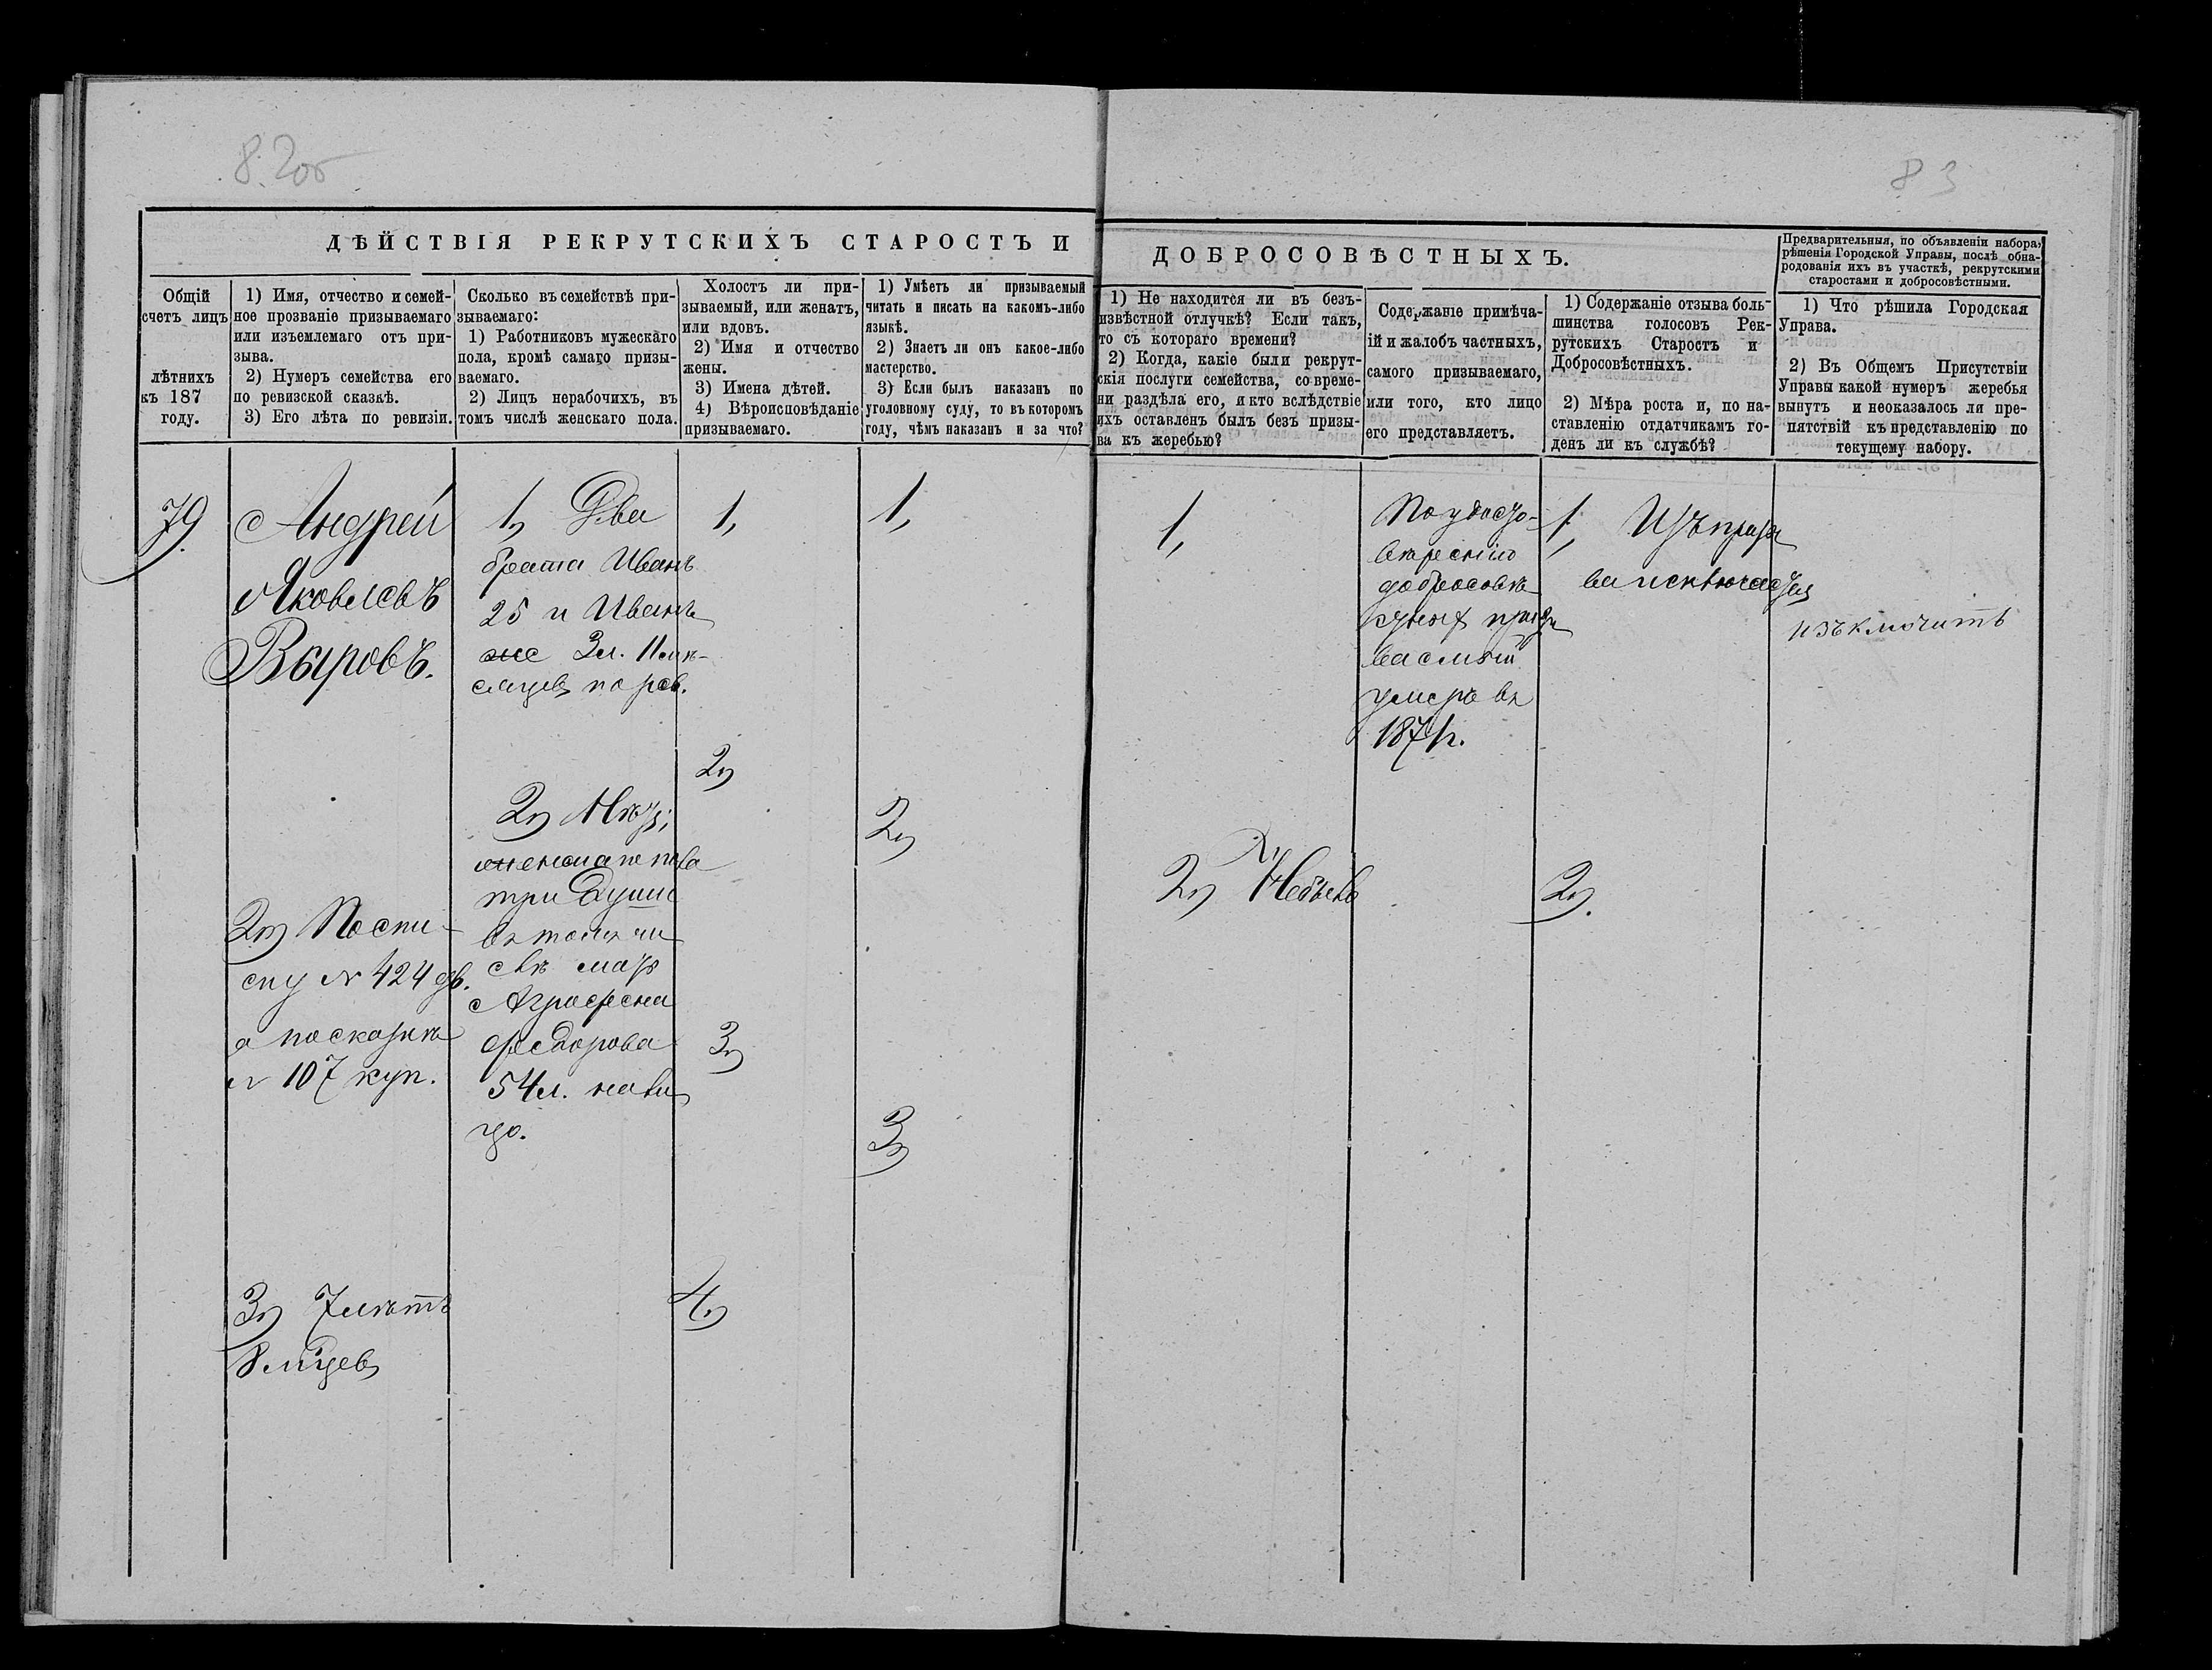 82об
83
ДѢЙСТВІЯ РЕКРУТСКИХЪ СТАРОСТЪ И
ДОБРОСОВѢСТНЫХЪ.
Предварительныя, по объявленіи набора,
рѣшенія Городской Управы, послѣ обна-
родованія ихъ въ участкѣ, рекрутскими
старостами и добросовѣстными.
Общій
счетъ лицъ
лѣтнихъ
къ 187
году.
1) Имя, отчество и семей-
ное прозваніе призываемаго
или изъемлемаго отъ при-
зыва.
2) Нумеръ семейства его
по ревизской сказкѣ.
3) Его лѣта по ревизіи.
Сколько въ семействѣ при-
зываемаго:
1) Работниковъ мужескаго
пола, кромѣ самаго призы-
ваемаго.
2) Лицъ нерабочихъ, въ
томъ числѣ женскаго пола.
Холостъ ли при-
зываемый, или женатъ,
или вдовъ.
2) Имя и отчество
жены.
3) Имена дѣтей.
4) Вѣроисповѣданіе
призываемаго.
1) Умѣетъ ли призываемый
читать и писать на какомъ-либо
языкѣ.
2) Знаетъ ли онъ какое-либо
мастерство.
3) Если былъ наказанъ по
уголовному суду, то въ которомъ
году, чѣмъ наказанъ и за что?
1) Не находится ли въ безъ-
извѣстной отлучкѣ? Если такъ,
то съ котораго времени?
2) Когда, какіе были рекрут-
скія послуги семейства, со време-
ни раздѣла его, и кто вслѣдствіе
ихъ оставленъ былъ безъ призы-
ва къ жеребью?
Содержаніе примѣча-
ій и жалобъ частныхъ,
самого призываемаго,
или того, кто лицо
его представляетъ.
1) Содержаніе отзыва боль-
шинства голосовъ Рек-
рутскихъ Старостъ и
Добросовѣстныхъ.
2) Мѣра роста и, по на-
ставленію отдатчикамъ го-
денъ ли къ службѣ?
1) Что рѣшила Городская
Управа.
2) Въ Общемъ Присутствіи
Управы какой нумеръ жеребья
вынутъ и неоказалось ли пре-
пятствій къ представленію по
текущему набору.
79.
Андрей
Яковлевъ
Выровъ.
2) По спи-
ску № 424 дв.
а по сказкѣ
№ 107 куп.
3) 7 лѣтъ
8 м-цевъ
1, Два
брата Иванъ
25 и Иванъ
же 3 л. 11 мѣ-
сяцевъ по рев.
2)
три души
въ томъ чи
слѣ мать
Аграфена
Федорова
54 л. на ли
цо.
1,
2)
3)
4)
1,
2)
3)
1,
2) Небылъ
По удосто-
веренію
добросовѣ
стныхъ призы
ваемый
умеръ въ
1871 г.
1, Изъ призы
ва исключается
2).
изъключить